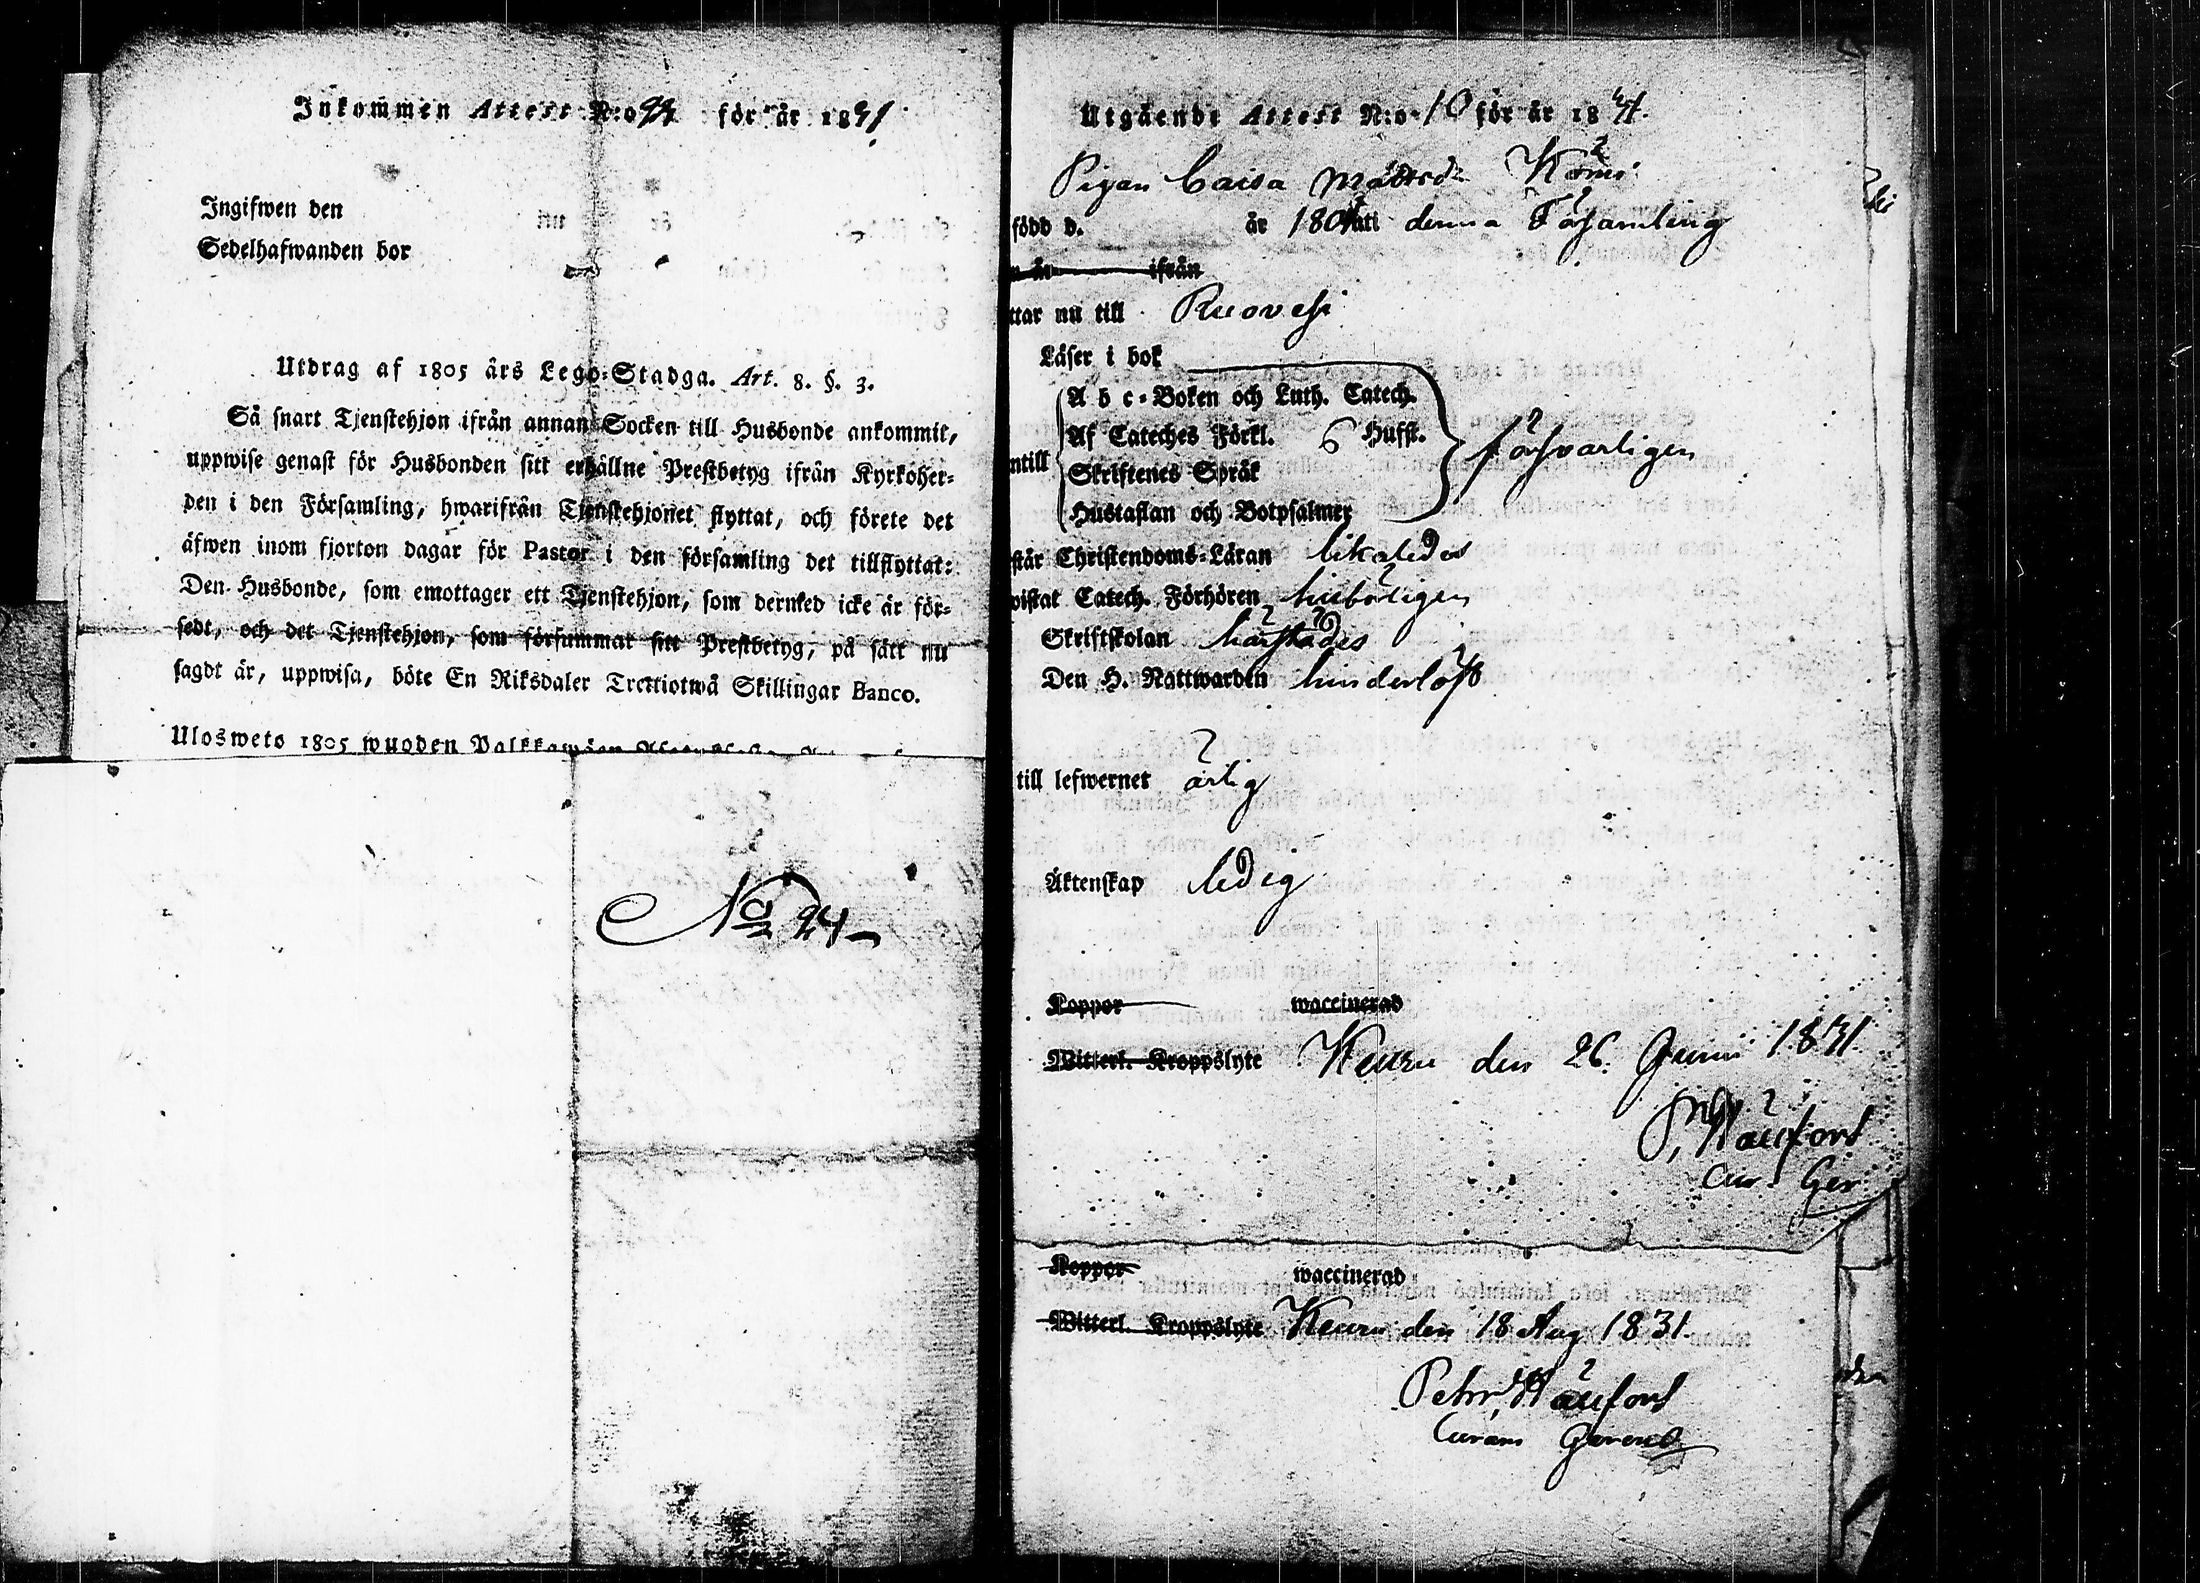 Inkommen Attest N:o 24 för år 1831
Ingifwen den
Sedelhafwanden bor
Utdrag af 1805 års Lego-Stadga. Art. 8. §. 3.
Så snart Tjenstehjon ifrån annan Socken till Husbonde ankommit,
uppwise genast för Husbonden sitt erhållne Prestbetyg ifrån Kyrkoher-
den i den Församling, hwarifrån Tjenstehjonet flyttat, och förete det
äfwen inom fjorton dagar för Pastor i den församling det tillflyttat:
Den Husbonde, som emottager ett Tjenstehjon, som dermed icke är för-
sedt, och det Tjenstehjon, som försummar sitt Prestbetyg, på sätt nu
sagdt är, uppwisa, böte En Riksdaler Trettiotwå Skillingar Banco.
Ulosweto 1805 wuoden
No 24
Utgående Attest N:o 10 för år 1831.
Pigan Caisa Mattsdr
född d. år 180 uti denna Församling
ifrån
ttar nu till Ruovesi
Läser i bok
A b c-Boken och Luth. Catech.
Af Cateches Förkl. 6 Hufst.
Skriftenes Språk
Hustaflan och Botpsalmer
ntill
försvarligen
står Christendoms-Läran likaledes
wistat Catech. Förhören
Skriftskolan härstädes
Den H. Nattwarden hinderlös
till lefwernet ärlig
Äktenskap ledig
Koppor waccinerad
Witterl. Kroppslyte Keuru den 26 Junii 1831.
Koppor waccinerad
Witterl. Kroppslyte Keuru den 18 Aug 1831.
Petr
Curam Gerens